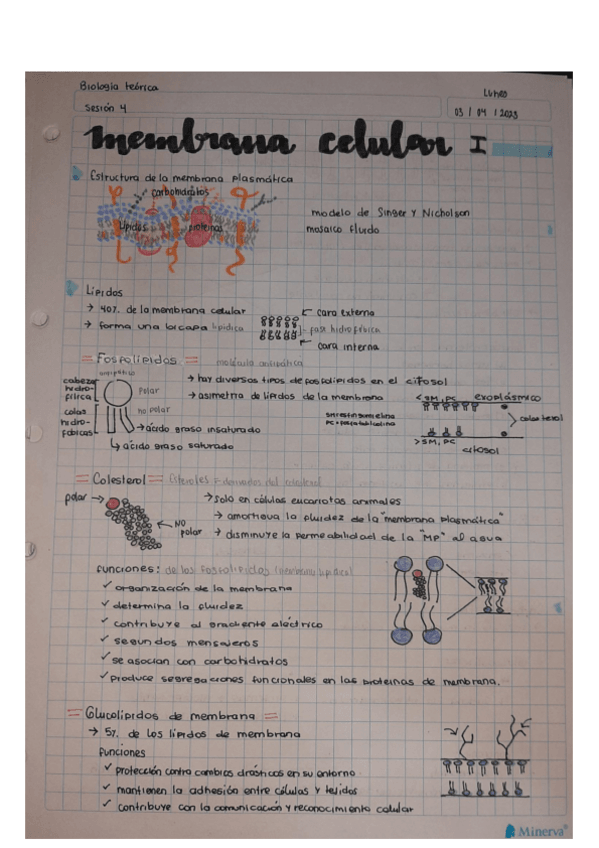 Biología teórica
Lunes
Sesión 4
03 / 04 / 2023
membrana celular I
Estructura de la membrana plasmática
carbohidratos
Lípidos
proteínas
modelo de Singer y Nicholson
mosaico fluido
Lípidos
→ 40% de la membrana celular
→ forma una bicapa lipídica
cara externa
fase hidrofóbica
cara interna
= Fosfolípidos =
molécula anfipática
anfipático
cabezas hidrofílica
Polar
colas hidrofóbicas
no polar
→ ácido graso insaturado
↳ ácido graso saturado
→ hay diversos tipos de fosfolípidos en el citosol
→ asimetría de lípidos de la membrana
SM: esfingomielina
PC: fosfatidilcolina
< SM, PC
exoplásmico
colesterol
> SM, PC
citosol
= Colesterol =
polar →
NO polar
→ Solo en células eucariotas animales
→ amortigua la fluidez de la "membrana plasmática"
→ disminuye la permeabilidad de la "MP" al agua
funciones: de los fosfolípidos (membrana lipídica)
✓ organización de la membrana
✓ determina la fluidez
✓ contribuye al gradiente eléctrico
✓ segundos mensajeros
✓ se asocian con carbohidratos
✓ produce segregaciones funcionales en las proteínas de membrana.
= Glucolípidos de membrana =
→ 5% de los lípidos de membrana
funciones
✓ protección contra cambios drásticos en su entorno
✓ mantienen la adhesión entre células y tejidos
✓ contribuye con la comunicación y reconocimiento celular
Minerva